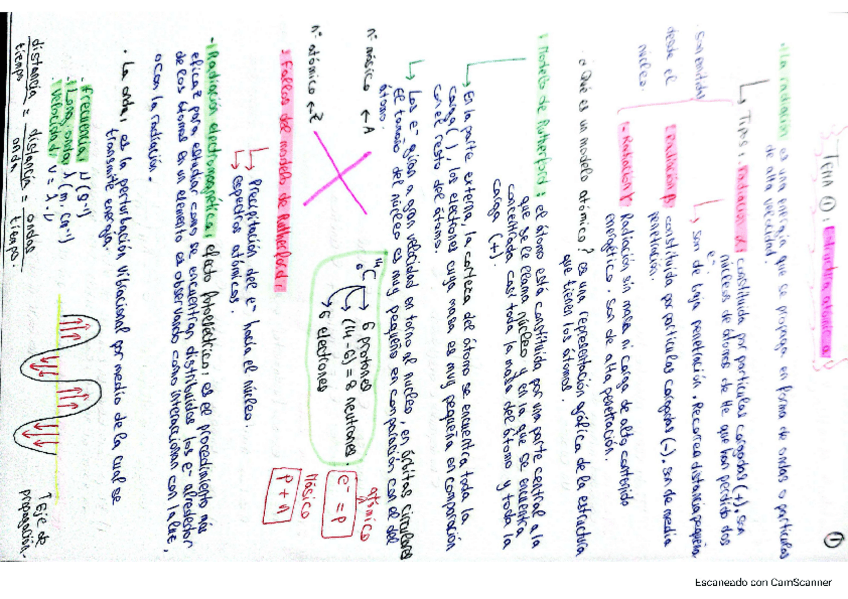 ①
TEMA ①: Estructura atómica
· La radiación es una energía que se propaga en forma de ondas o partículas
de alta velocidad.
↳ Tipos: radiación α: constituida por partículas cargadas (+), son
núcleos de átomos de He que han perdido dos
e⁻.
↳ son de baja penetración. Recorren distancia pequeña
Son emitidas
desde el
núcleo.
radiación β: constituida por partículas cargadas (-), son de media
penetración.
radiación γ: Radiación sin masa ni carga de alto contenido
energético. son de alta penetración.
· ¿Qué es un modelo atómico? es una representación gráfica de la estructura
que tienen los átomos.
Modelo de Rutherford: el átomo está constituida por una parte central a la
que se le llama núcleo y en la que se encuentra
concentrada casi toda la masa del átomo y toda la
carga (+).
↳ En la parte externa, la corteza del átomo se encuentra toda la
carga (), los electrones cuya masa es muy pequeña en comparación
con el resto del átomo.
↳ Los e⁻ giran a gran velocidad en torno al núcleo, en órbitas circulares
El tamaño del núcleo es muy pequeño en comparación con el del
átomo.
nº másico ← A
nº atómico ← Z
X
¹⁴₆C
6 protones
(14-6) = 8 neutrones.
6 electrones
atómico
e⁻ = P
Másico
P + n
· Fallos del modelo de Rutherford:
↳ Precipitación del e⁻ hacia el núcleo.
↳ espectros atómicos.
· Radiación electromagnética: efecto fotoeléctrico: es el procedimiento más
eficaz para estudiar como se encuentran distribuidos los e⁻ alrededor
de los átomos en un elemento es observando como interaccionan con la luz,
o con la radiación.
· La onda: es la perturbación vibracional por medio de la cual se
transmite energía.
· Frecuencia: ν (s⁻¹)
· Long. onda: λ (m, cm⁻¹)
· Velocidad: v = λ · ν
distancia / tiempo = distancia / onda · ondas / tiempo.
↑ Eje de
propagación.
Escaneado con CamScanner